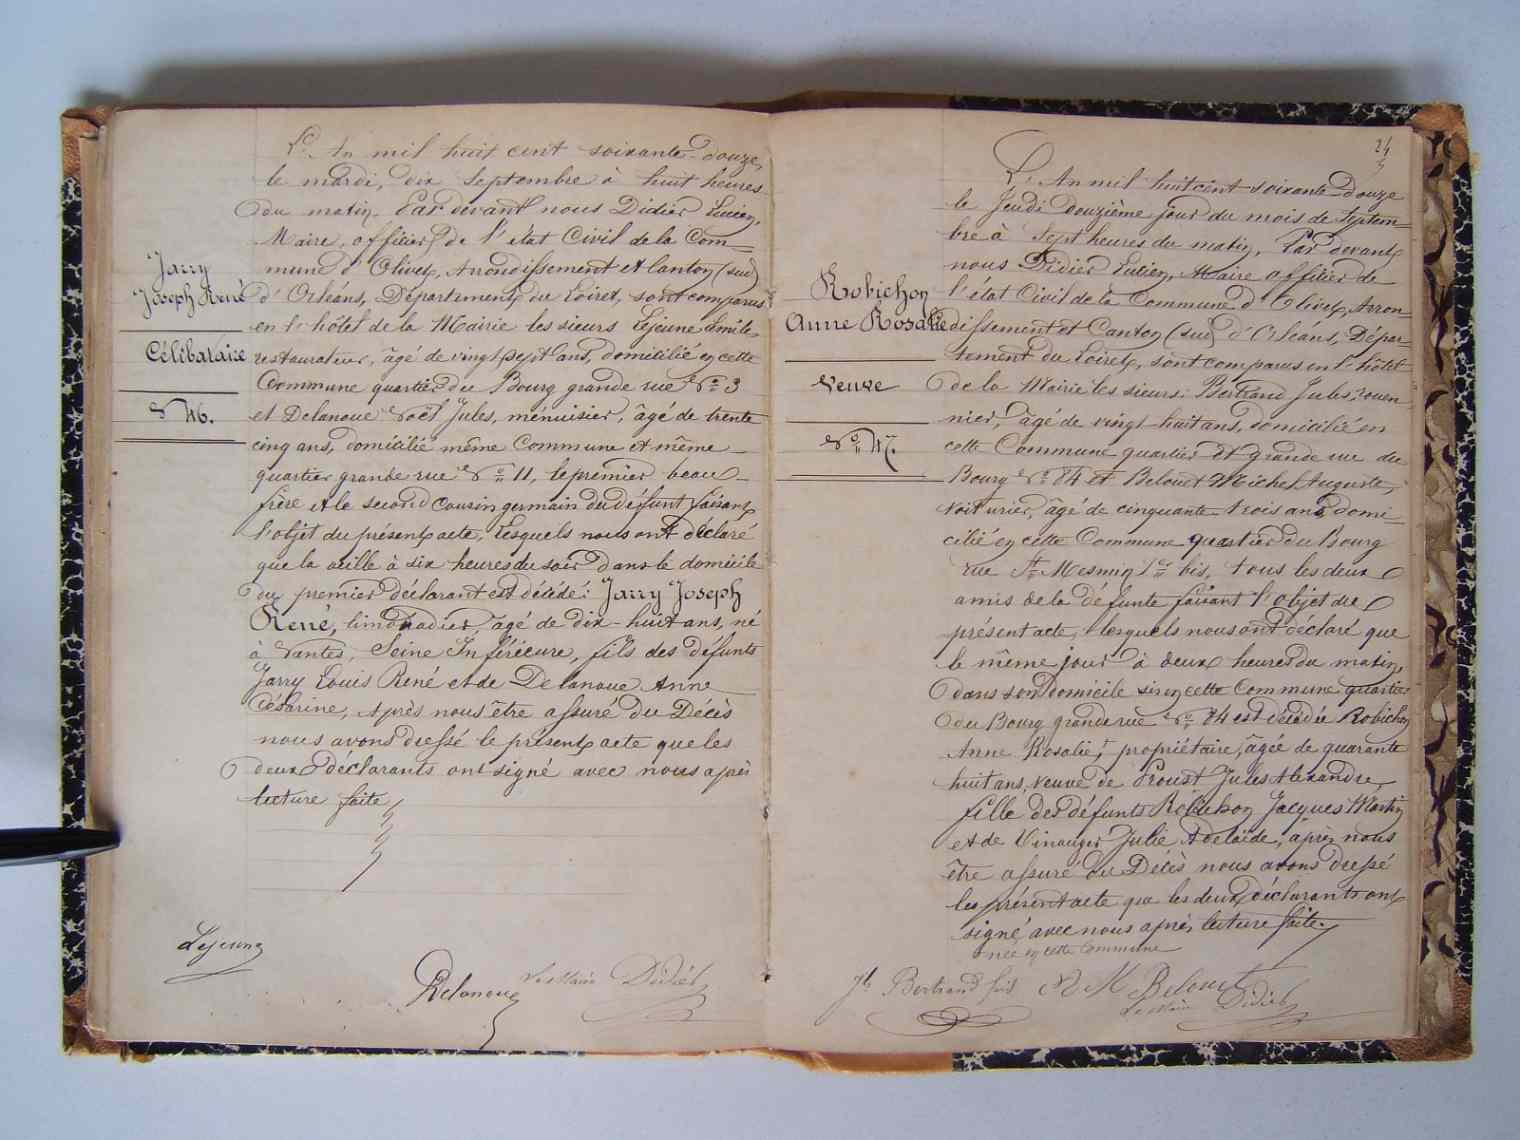 Jarry
Joseph René
Célibataire
N° 46.
L'An mil huit cent soixante-douze,
le mardi, dix Septembre à huit heures
du matin. Par devant nous Didier Lucien,
Maire, officier de l'état Civil de la Com-
mune d'Olivet, Arrondissement et Canton (sud)
d'Orléans, Département du Loiret, sont comparus
en l'hôtel de la Mairie les sieurs Lejeune Emile
restaurateur, âgé de vingt sept ans, domicilié en cette
Commune quartier du Bourg grande rue N° 3
et Delanoue Noël Jules, ménuisier, âgé de trente
cinq ans, domicilié même Commune et même
quartier grande rue N° 11, le premier beau
frère et le second Cousin germain du défunt faisant
l'objet du présent acte, Lesquels nous ont déclaré
que la veille à six heures du soir dans le domicile
du premier déclarant est décédé: Jarry Joseph
René, limonadier, âgé de dix-huit ans, né
à Nantes, Seine Inférieure, fils des défunts
Jarry Louis René et de Delanoue Anne
Césarine, Après nous être assuré du Décès
nous avons dressé le présent acte que les
deux déclarants ont signé avec nous après
lecture faite
Lejeune
Delanoue
Le Maire Didier
24
Robichon
Anne Rosalie
Veuve
N° 47.
L'An mil huit cent soixante-douze
le Jeudi douzième jour du mois de Septem-
bre à Sept heures du matin, Par devant
nous Didier Lucien, Maire officier de
l'état Civil de la Commune d'Olivet, Arron-
dissement et Canton (sud) d'Orléans, Dépar-
tement du Loiret, sont comparus en l'hôtel
de la Mairie les sieurs: Bertrand Jules
nier, âgé de vingt huit ans, domicilié en
cette Commune quartier et grande rue du
Bourg N° 84 et Belouet Michel Auguste,
voiturier, âgé de cinquante trois ans, domi-
cilié en cette Commune quartier du Bourg
rue St Mesmin 1 bis, tous les deux
amis de la défunte faisant l'objet du
présent acte, lesquels nous ont déclaré que
le même jour à deux heures du matin,
dans son domicile sis en cette Commune quartier
du Bourg grande rue N° 84 est décédée Robichon
Anne Rosalie, propriétaire, âgée de quarante
huit ans, veuve de Proust Jules Alexandre,
fille des défunts Robichon Jacques Martin
et de Vinauger Julie Adelaïde, après nous
être assuré du Décès nous avons dressé
les présent acte que les deux déclarants ont
signé avec nous après lecture faite.
née en cette Commune
Jls Bertrand fils
M Belouet
Le Maire Didier